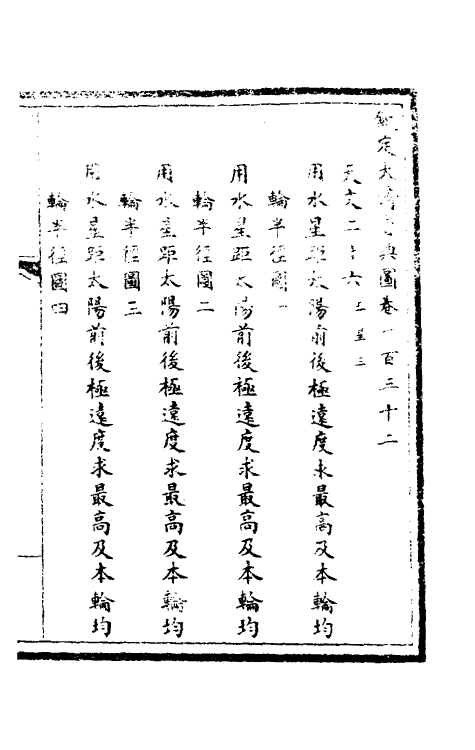 欽定大清會典圖卷一百三十二
天文二十六 五星三
用水星距太陽前後極遠度求最高及本輪均
輪半徑圖一
用水星距太陽前後極遠度求最高及本輪均
輪半徑圖二
用水星距太陽前後極遠度求最高及本輪均
輪半徑圖三
用水星距太陽前後極遠度求最高及本輪均
輪半徑圖四